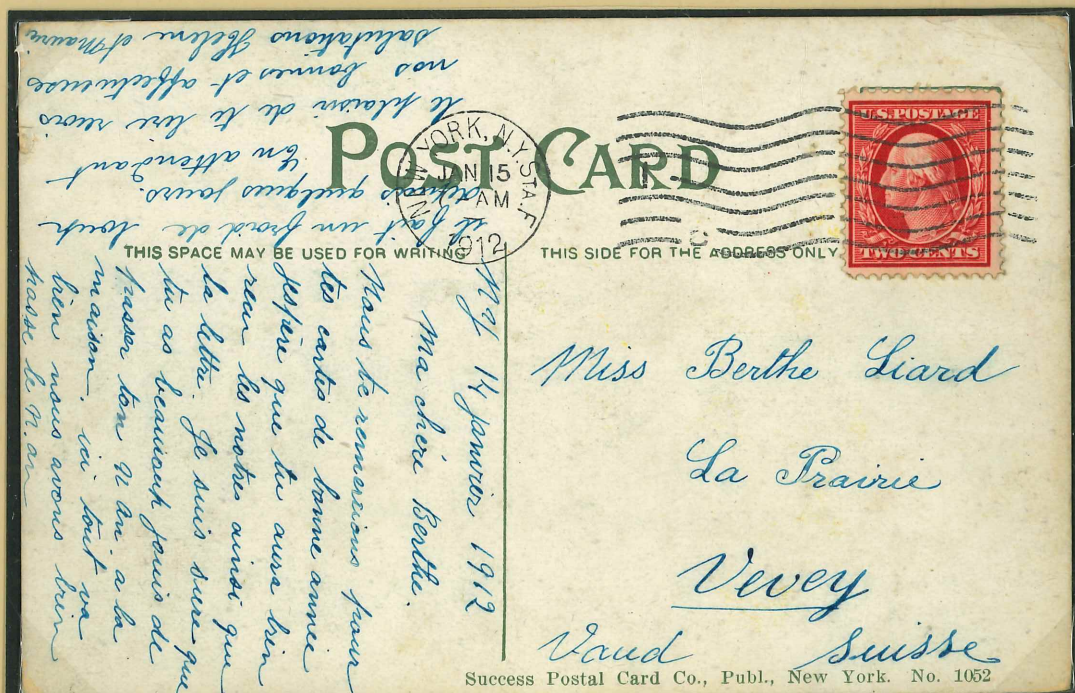 POST CARD
NEW YORK, N.Y. STA. F
JAN 15
AM
1912
U.S. POSTAGE
TWO CENTS
THIS SPACE MAY BE USED FOR WRITING
THIS SIDE FOR THE ADDRESS ONLY
NY 14 janvier 1912
Ma chère Berthe.
Nous te remercions pour
tes cartes de bonne année
j'espère que tu aura bien
recu les notres ainsi que
la lettre. Je suis sure que
tu as beaucoup jouis de
passer ton N An a la
maison. ici tout va
bien nous avons bien
passé le N. an
il fait un froid de loup
depuis quelques jours.
En attendant
le plaisir de te lire reçois
nos bonnes et affectueuse
salutations Hélène et Maurice
Miss Berthe Liard
La Prairie
Vevey
Vaud Suisse
Success Postal Card Co., Publ., New York. No. 1052